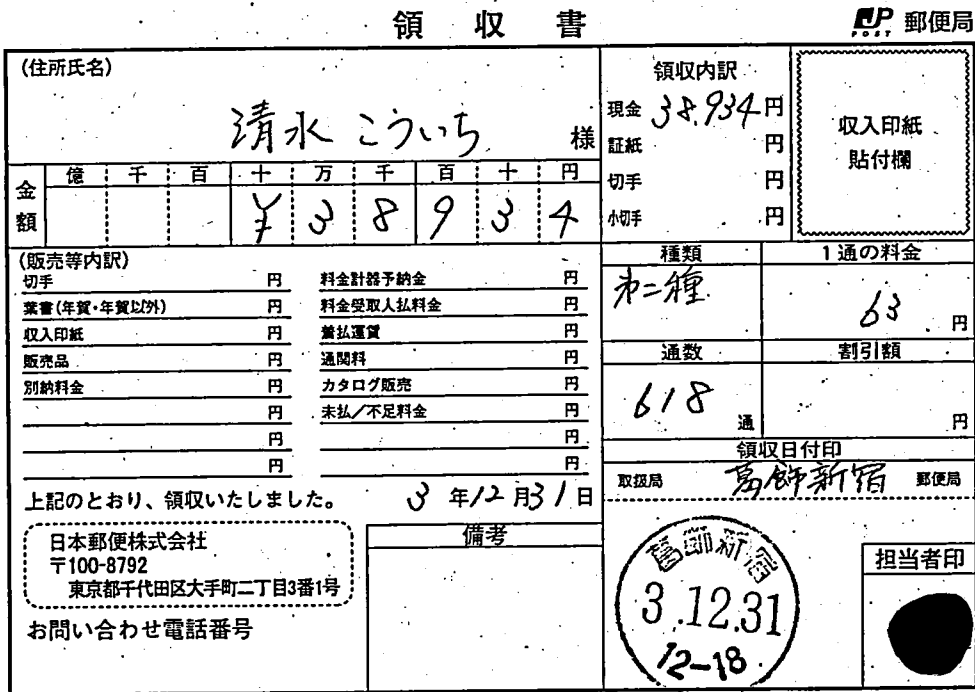 領収書
JP POST 郵便局
(住所氏名)
清水 こういち 様
金額
億 千 百 十 万 千 百 十 円
¥ 3 8 9 3 4
領収内訳
現金 38,934 円
証紙 円
切手 円
小切手 円
収入印紙
貼付欄
(販売等内訳)
切手 円
葉書(年賀・年賀以外) 円
収入印紙 円
販売品 円
別納料金 円
円
円
円
料金計器予納金 円
料金受取人払料金 円
着払運賃 円
通関料 円
カタログ販売 円
未払/不足料金 円
円
円
種類
㐧二種
1通の料金
63 円
通数
618 通
割引額
円
領収日付印
取扱局 葛飾新宿 郵便局
上記のとおり、領収いたしました。
3 年 12 月 31 日
日本郵便株式会社
〒100-8792
東京都千代田区大手町二丁目3番1号
お問い合わせ電話番号
備考
葛飾新宿
3.12.31
12-18
担当者印